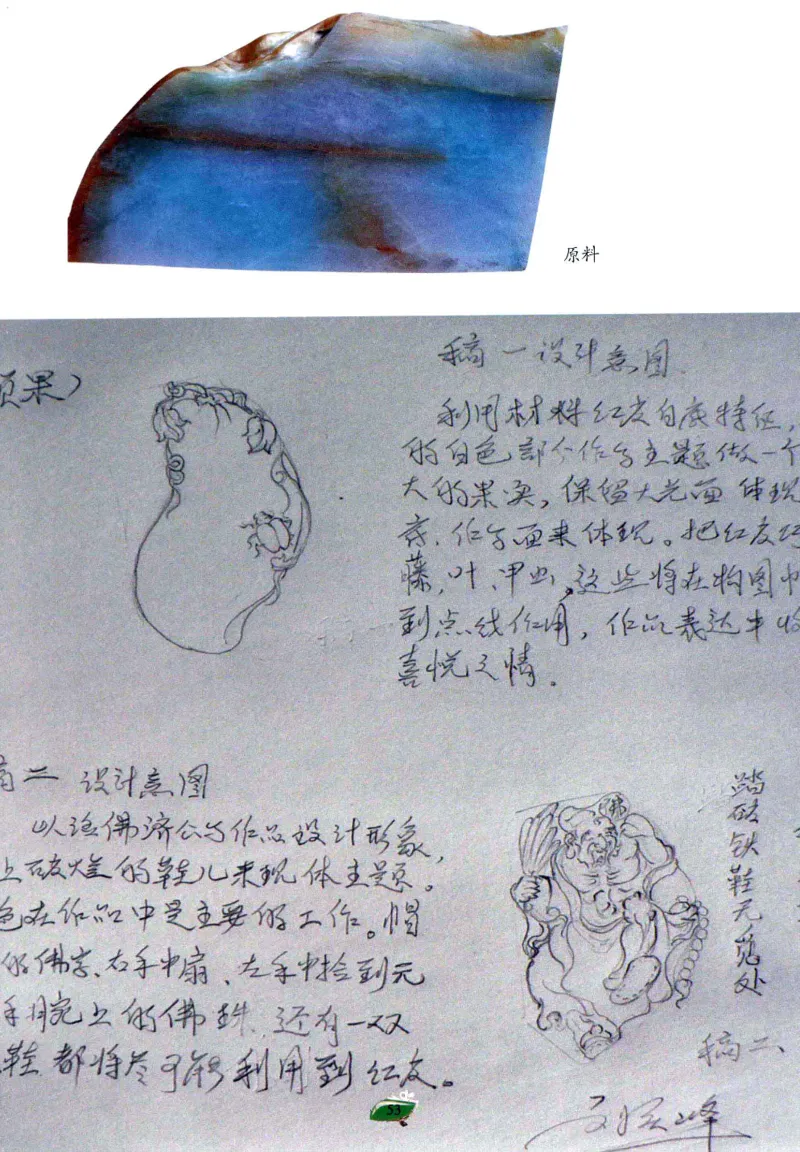 原料
页果）
稿一设计意图
利用材料红皮白底特征，
的白色部分作为主题做一个
大的果实，保留大光面体现
底，作为面来体现。把红皮巧
藤、叶、甲虫，这些将在构图中
到点线作用，作品表达丰收
喜悦之情。
稿二 设计意图
以活佛济公为作品设计形象，
上破烂的鞋儿来现体主题。
色在作品中是主要的工作。帽
的佛字、右手中扇、左手中拾到元
手腕上的佛珠，还有一双
鞋都将尽可能利用到红皮。
佛
踏破铁鞋无觅处
稿二、
53